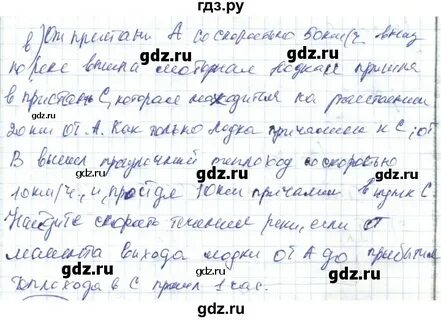 гдз.ру
в) От пристани А со скоростью 50км/ч вниз
по реке вышла моторная лодка и пришла
в пристань С, которая находится на расстоянии
20км от А. Как только лодка причалила к С, от
В вышел прогулочный теплоход со скоростью
10км/ч, и, пройдя 10км причалил в пункт С
Найдите скорость течения реки, если от
момента выхода лодки от А до прибытия
теплохода в С прошел 1 час.